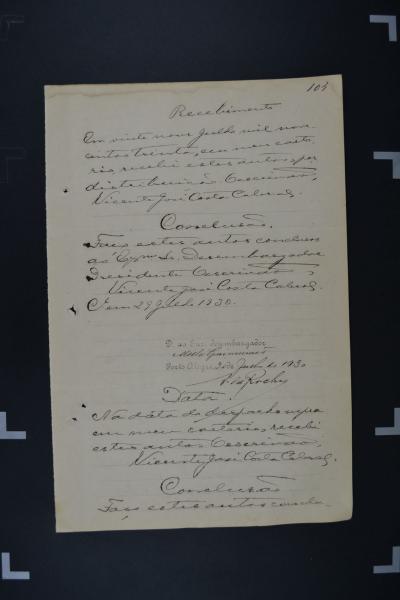 104
Recebimento
Em vinte nove Julho mil nove-
centos trinta, em meu carto-
rio, recebi estes autos, por
distribuição. O escrivão,
Vicente José Costa Cabral.
Conclusão.
Faço estes autos conclusos
ao Exmo Sr. Desembargador
Presidente. O escrivão,
Vicente José Costa Cabral.
C. em 29 Julho 1930.
D. ao Exm. desembargador
Mello Guimarães
Porto Alegre, de Julho de 1930
Data.
Na data do despacho supra
em meu cartorio, recebi
estes autos. O escrivão,
Vicente José Costa Cabral.
Conclusão
Faço estes autos conclu-